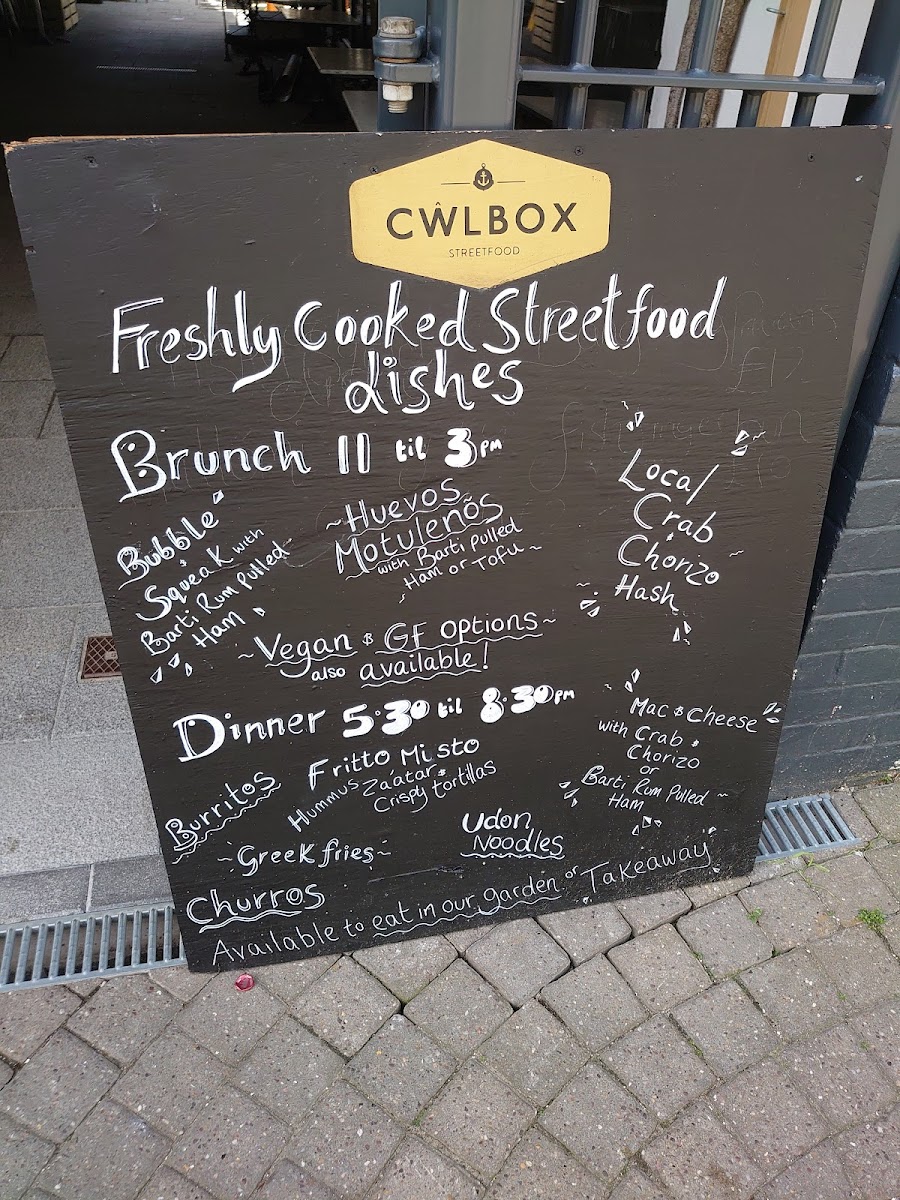 CŴLBOX
STREETFOOD
Freshly Cooked Streetfood
dishes
Brunch 11 til 3pm
Bubble
& Squeak with
Barti Rum Pulled
Ham
~Huevos
Motulenõs
with Barti Pulled
Ham or Tofu~
Local
Crab
&
Chorizo
Hash
~Vegan & GF options~
also available!
Dinner 5:30 til 8:30pm
Burritos
Fritto Misto
Hummus Za'atar &
Crispy tortillas
Mac & Cheese
with Crab &
Chorizo
or
Barti Rum Pulled
Ham
~Greek fries~
Udon
Noodles
Churros
Available to eat in our garden or Takeaway